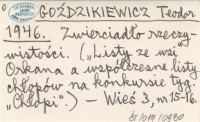 GOŹDZIKIEWICZ Teodor
1946. Zwierciadło rzeczy-
wistości. („Listy ze wsi”
Orkana a współczesne listy
chłopów na konkursie tyg.
„Chłopi”.) – Wieś 3, nr 15-16.